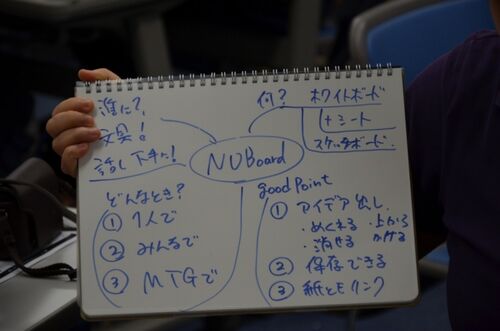 誰に?
文具!
話し下手に!
何?
ホワイトボード
+シート
スケッチボード.
NUBoard
どんなとき?
① 1人で
② みんなで
③ MTGで
good Point
① アイデア出し
・めくれる ・上から
・消せる かける
② 保存できる
③ 紙ともリンク